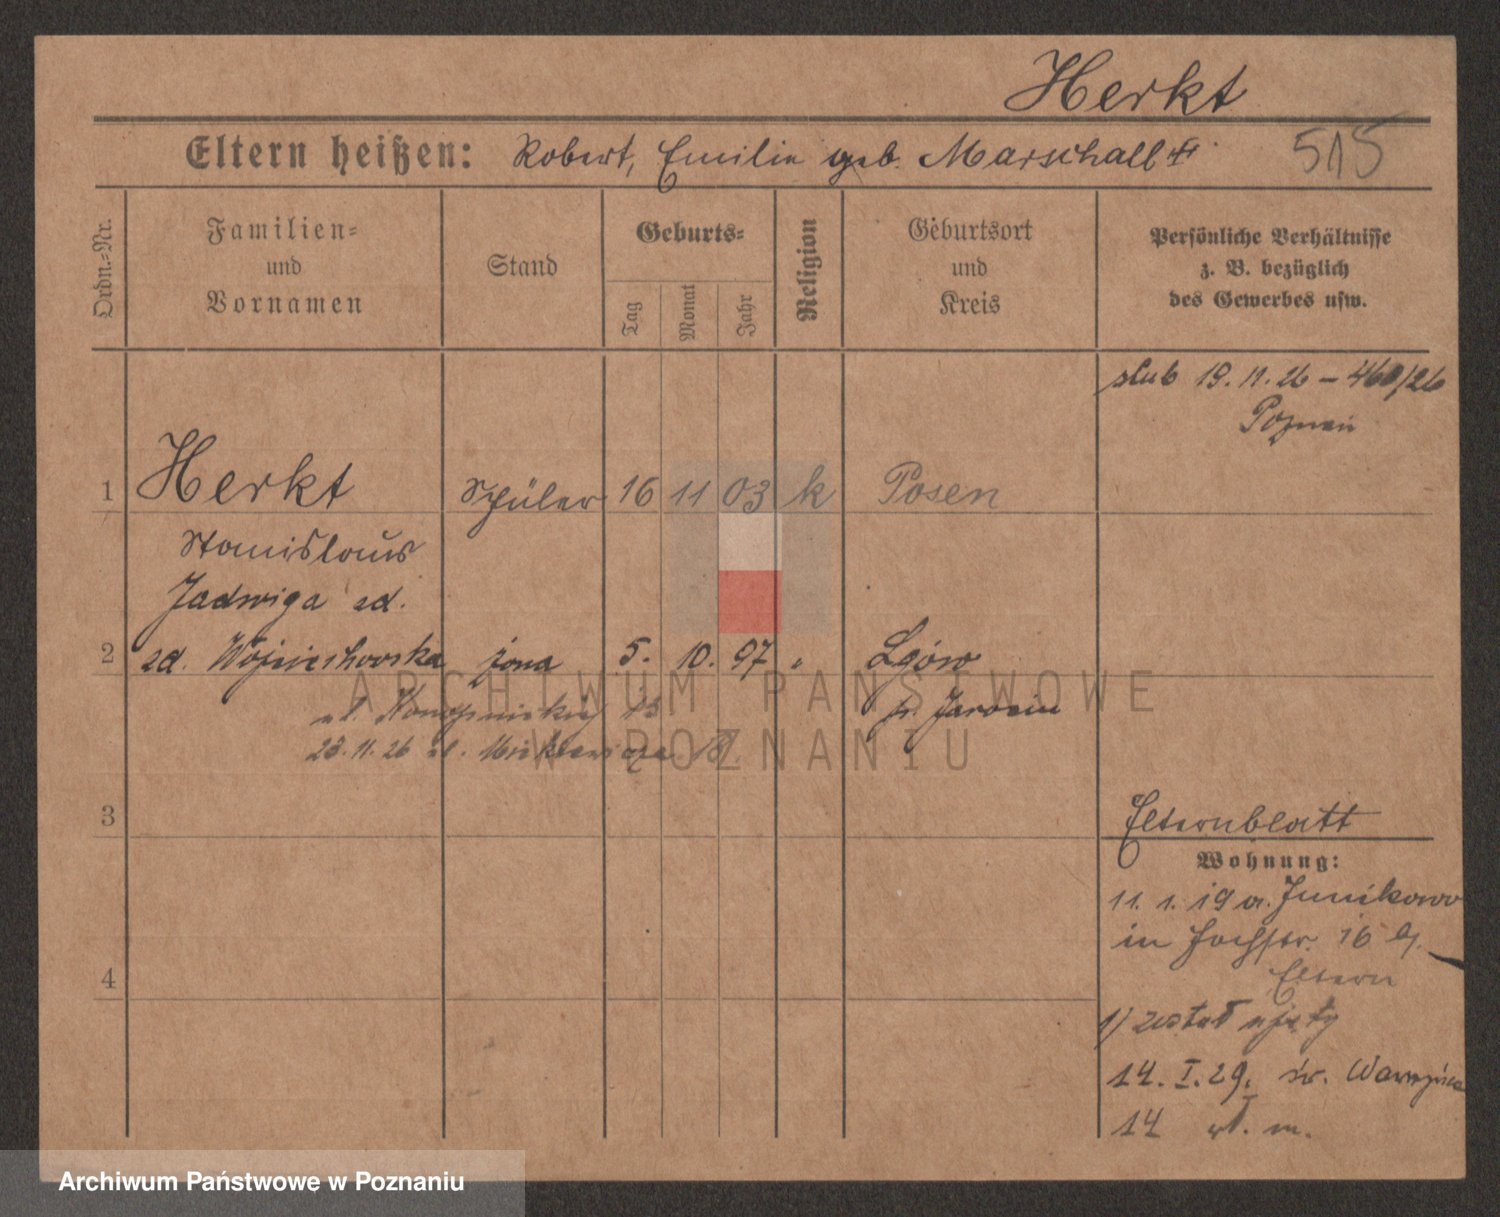 Herkt
Eltern heißen: Robert, Emilie geb. Marschall
515
Ordn.-Nr.
Familien- und Vornamen
Stand
Geburts-
Tag
Monat
Jahr
Religion
Geburtsort und Kreis
Persönliche Verhältnisse
z. B. bezüglich
des Gewerbes usw.
ślub 19.11.26 – 460/26
Poznań
1 Herkt Schüler 16 11 03 k Posen
Stanislaus
Jadwiga zd.
2 zd. Wojciechowska żona 5. 10. 97 „ Lgów
ul. Konopnickiej 13 p. Jarocin
23.11.26 ul. Mickiewicza
ARCHIWUM PAŃSTWOWE
W POZNANIU
3
Elternblatt
Wohnung:
11. 1. 19 a. Junikowo
in Hochstr. 16
Eltern
4
1) został ujęty
14. I. 29. św. Wawrzyńca
14 wł. m.
Archiwum Państwowe w Poznaniu